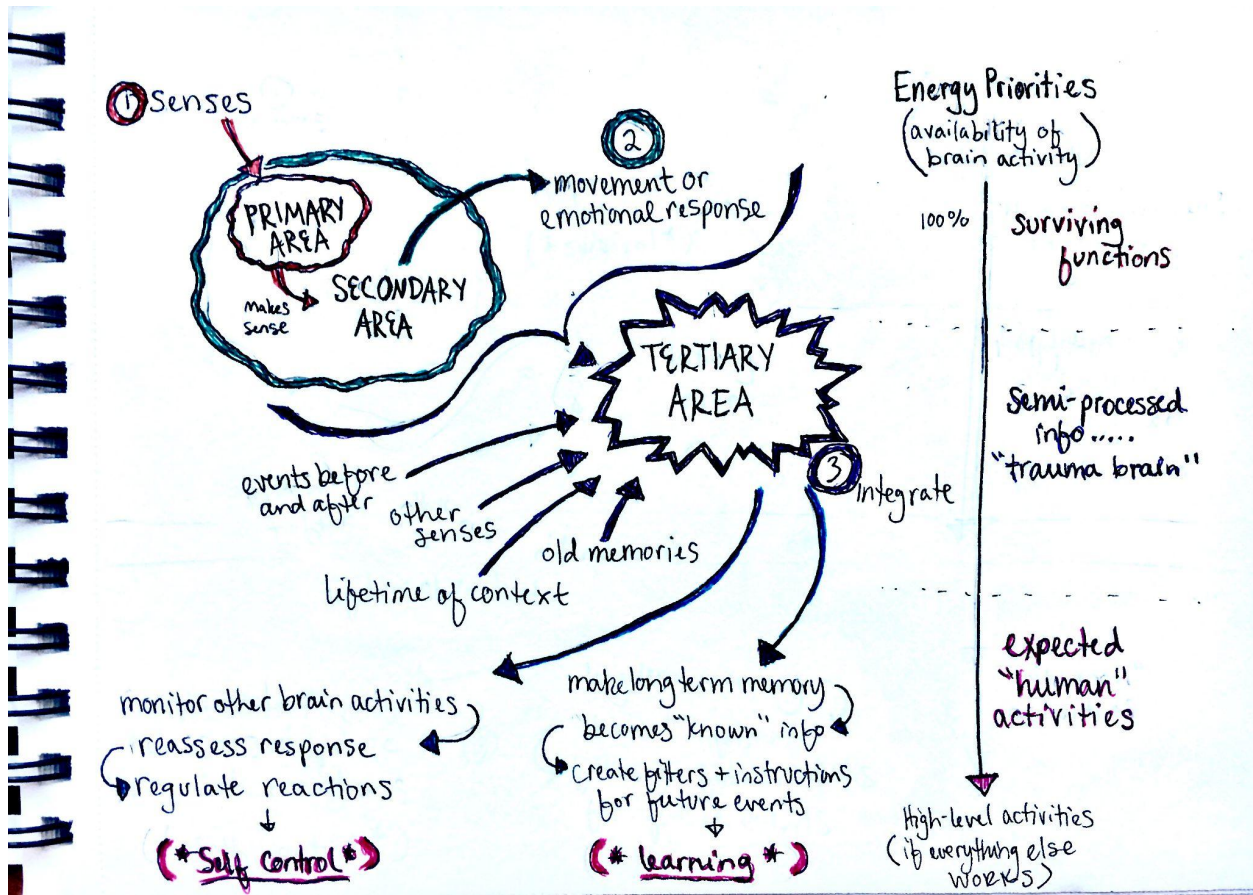 1 Senses
PRIMARY
AREA
makes
sense
SECONDARY
AREA
2
movement or
emotional response
TERTIARY
AREA
3
integrate
events before
and after
other
senses
lifetime of context
old memories
monitor other brain activities
reassess response
regulate reactions
(*Self Control*)
make long term memory
becomes "known" info
create filters + instructions
for future events
(* learning *)
Energy Priorities
(availability of
brain activity)
100%
surviving
functions
Semi-processed
info.....
"trauma brain"
expected
"human"
activities
High-level activities
(if everything else
works)